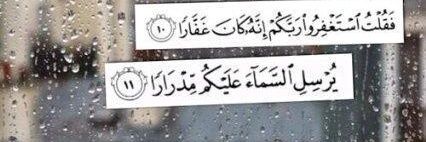 فَقُلْتُ ٱسْتَغْفِرُوا۟ رَبَّكُمْ إِنَّهُۥ كَانَ غَفَّارًا ١٠
يُرْسِلِ ٱلسَّمَآءَ عَلَيْكُم مِّدْرَارًا ١١